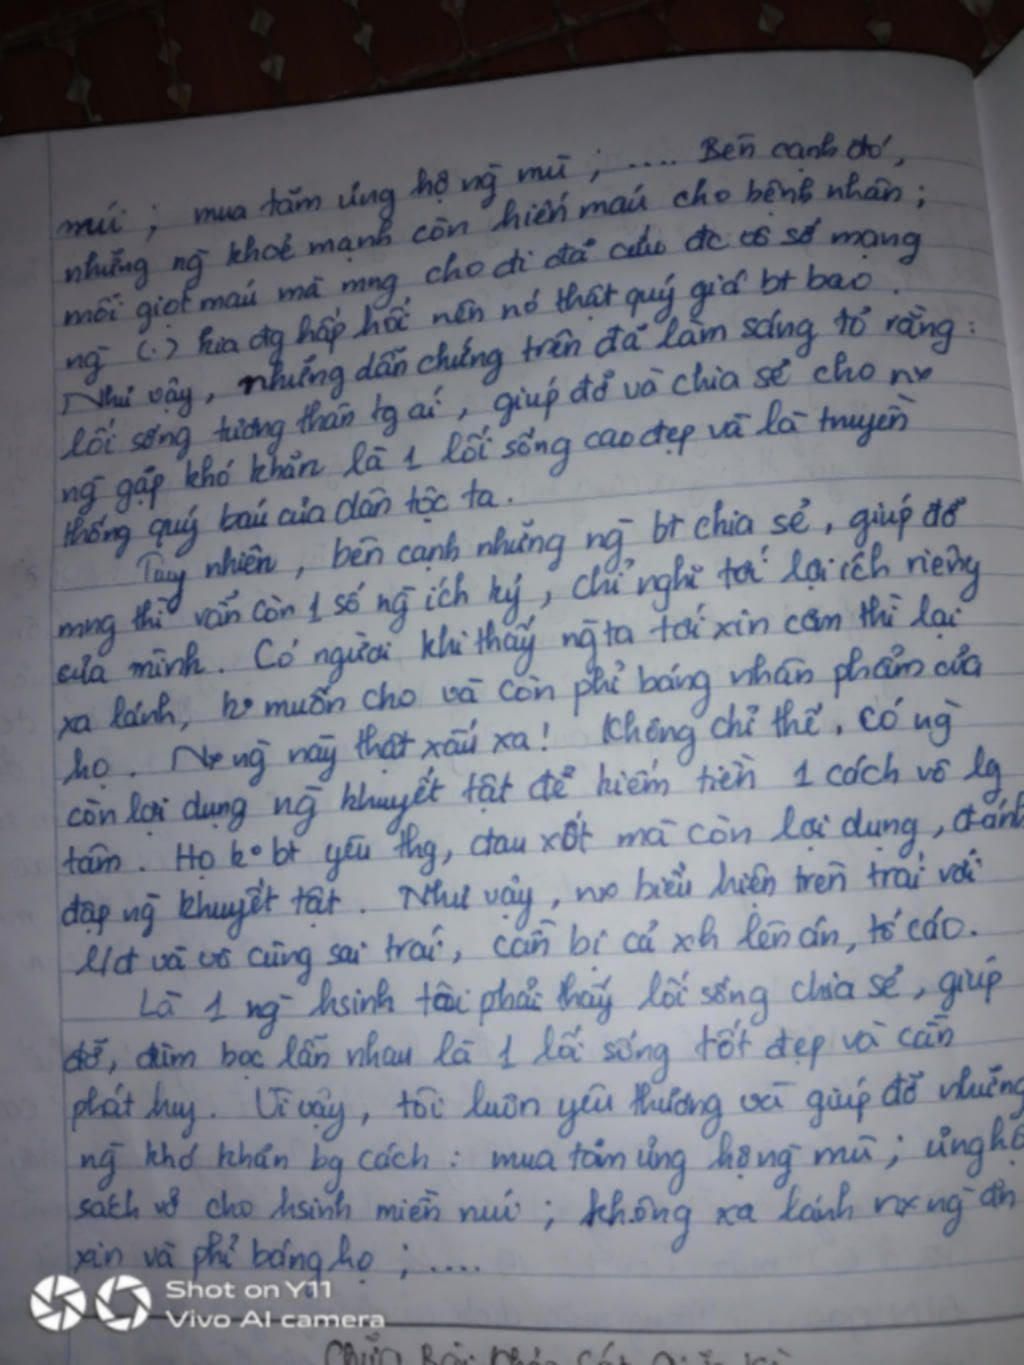 núi ; mua tăm ủng hộ ng̀ mù ; .... Bên cạnh đó,
những ng̀ khoẻ mạnh còn hiến máu cho bệnh nhân ;
mỗi giọt máu mà mng cho đi đã cứu đc số mạng
ng̀ (.) đg hấp hối nên nó thật quý giá bt bao.
Như vậy, những dẫn chứng trên đã làm sáng tỏ rằng :
lối sống tương thân tg ái, giúp đỡ và chia sẻ cho nx
ng̀ gặp khó khăn là 1 lối sống cao đẹp và là truyền
thống quý báu của dân tộc ta.
Tuy nhiên, bên cạnh những ng̀ bt chia sẻ, giúp đỡ
mng thì vẫn còn 1 số ng̀ ích kỷ, chỉ nghĩ tới lợi ích riêng
của mình. Có người khi thấy ng̀ ta tới xin cơm thì lại
xa lánh, ko muốn cho và còn phỉ báng nhân phẩm của
họ. Nx ng̀ này thật xấu xa! Không chỉ thế, có ng̀
còn lợi dụng ng̀ khuyết tật để kiếm tiền 1 cách vô lg
tâm. Họ ko bt yêu thg, đau xót mà còn lợi dụng, đánh
đập ng̀ khuyết tật. Như vậy, nx biểu hiện trên trái với
l/đ và vô cùng sai trái, cần bị cả xh lên án, tố cáo.
Là 1 ng̀ hsinh tôi phải thấy lối sống chia sẻ, giúp
đỡ, đùm bọc lẫn nhau là 1 lối sống tốt đẹp và cần
phát huy. Vì vậy, tôi luôn yêu thương và giúp đỡ những
ng̀ khó khăn bg cách : mua tăm ủng hộ ng̀ mù ; ủng hộ
sách vở cho hsinh miền núi ; không xa lánh nx ng̀ ăn
xin và phỉ báng họ ; ....
Shot on Y11
Vivo AI camera